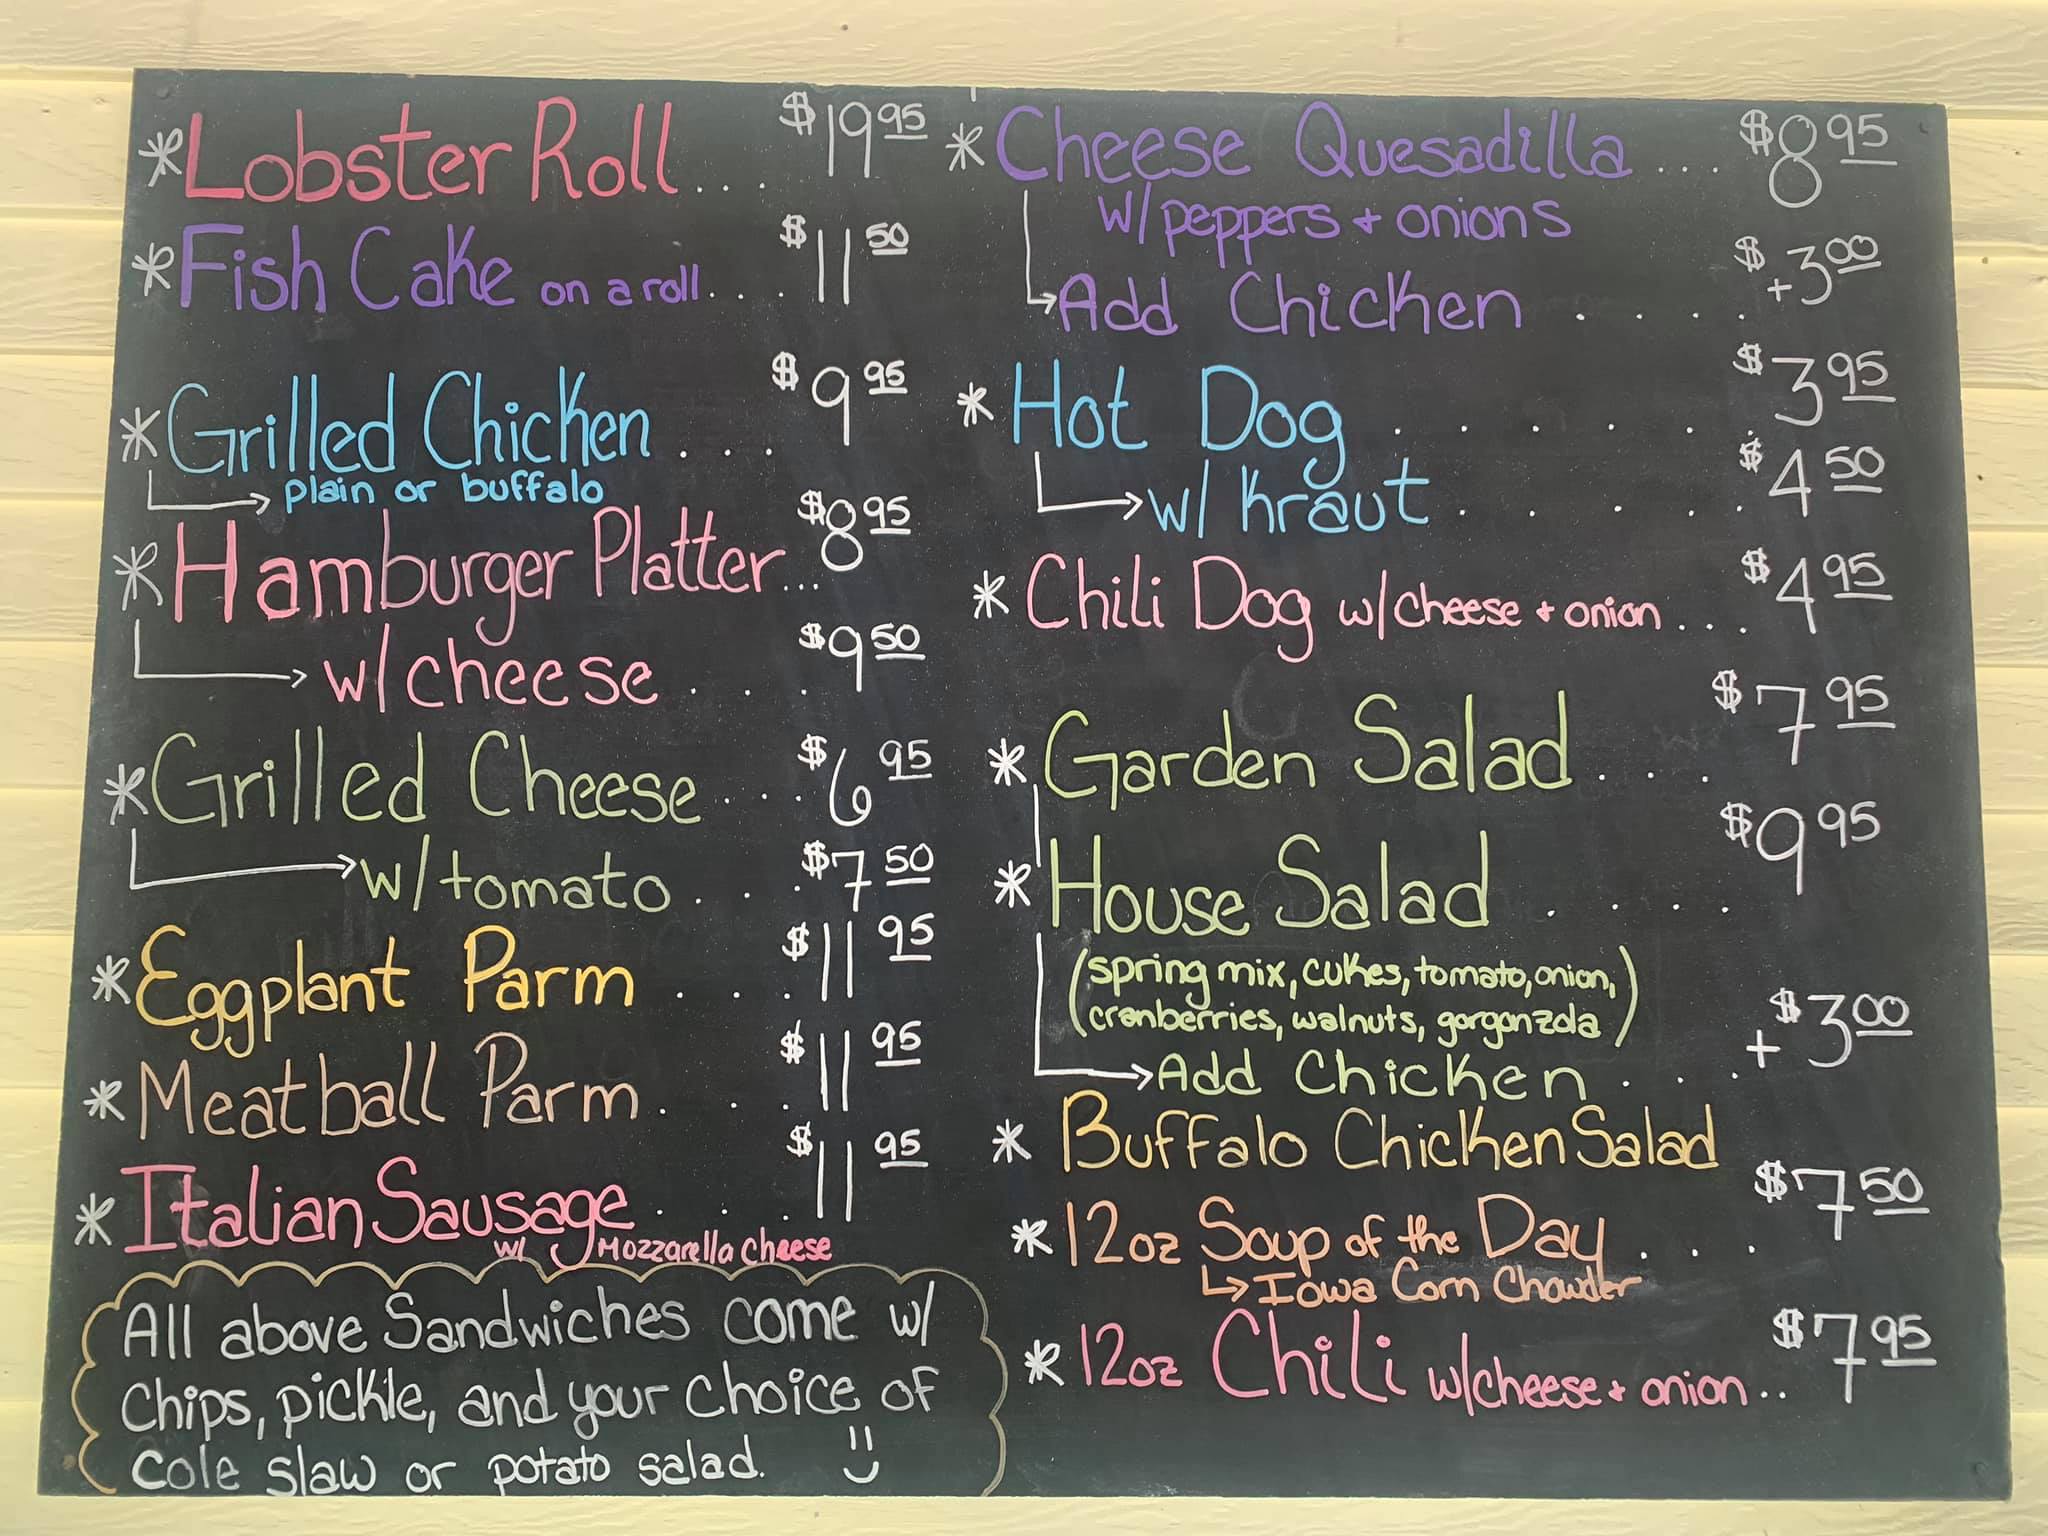 * Lobster Roll... $19.95
* Fish Cake on a roll.... $11.50
* Grilled Chicken.... $9.95
plain or buffalo
* Hamburger Platter... $8.95
w/ cheese.... $9.50
* Grilled Cheese.... $6.95
w/ tomato... $7.50
* Eggplant Parm.... $11.95
* Meatball Parm.... $11.95
* Italian Sausage.... $11.95
w/ Mozzarella Cheese
All above Sandwiches come w/
Chips, pickle, and your choice of
Cole slaw or potato salad.
* Cheese Quesadilla.... $8.95
w/ peppers + onions
Add Chicken.... $+3.00
* Hot Dog....... $3.95
w/ Kraut...... $4.50
* Chili Dog w/ cheese + onion... $4.95
* Garden Salad.... $7.95
* House Salad.... $9.95
(spring mix, cukes, tomato, onion,
cranberries, walnuts, gorgonzola)
Add Chicken.... +$3.00
* Buffalo Chicken Salad
* 12oz Soup of the Day... $7.50
Iowa Corn Chowder
* 12oz Chili w/ cheese + onion.. $7.95